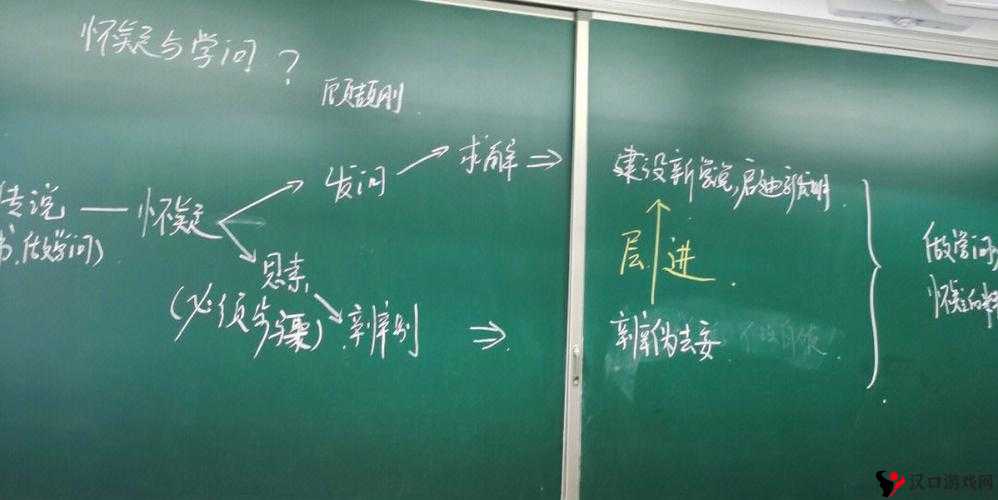 怀疑与学问?
顾颉刚
传说 — 怀疑
书、做学问)
发问 → 求解 ⇒
思索
(必须步骤)
辨别 ⇒
建设新学说,启迪新发明
层进
辨伪去妄
做学问
怀疑的
汉口游戏网